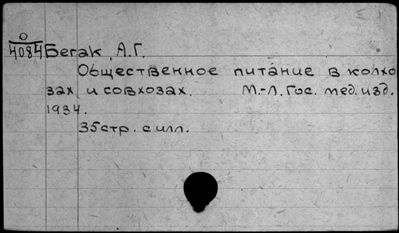 О
4084 Бегак, А.Г.
Общественное питание в колхо
зах и совхозах. М.-Л. Гос. мед. изд.
1934.
35 стр. с илл.